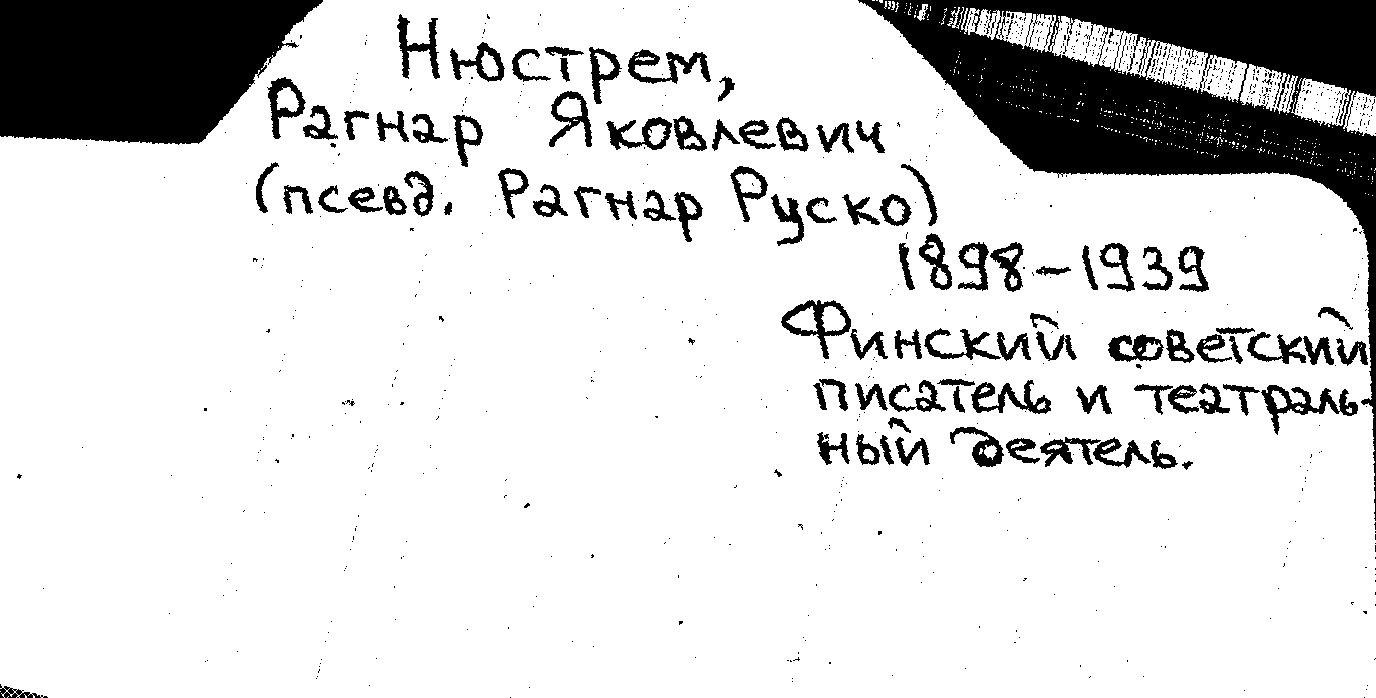 Нюстрем,
Рагнар Яковлевич
(псевд. Рагнар Руско)
1898-1939
Финский советский
писатель и театраль-
ный деятель.